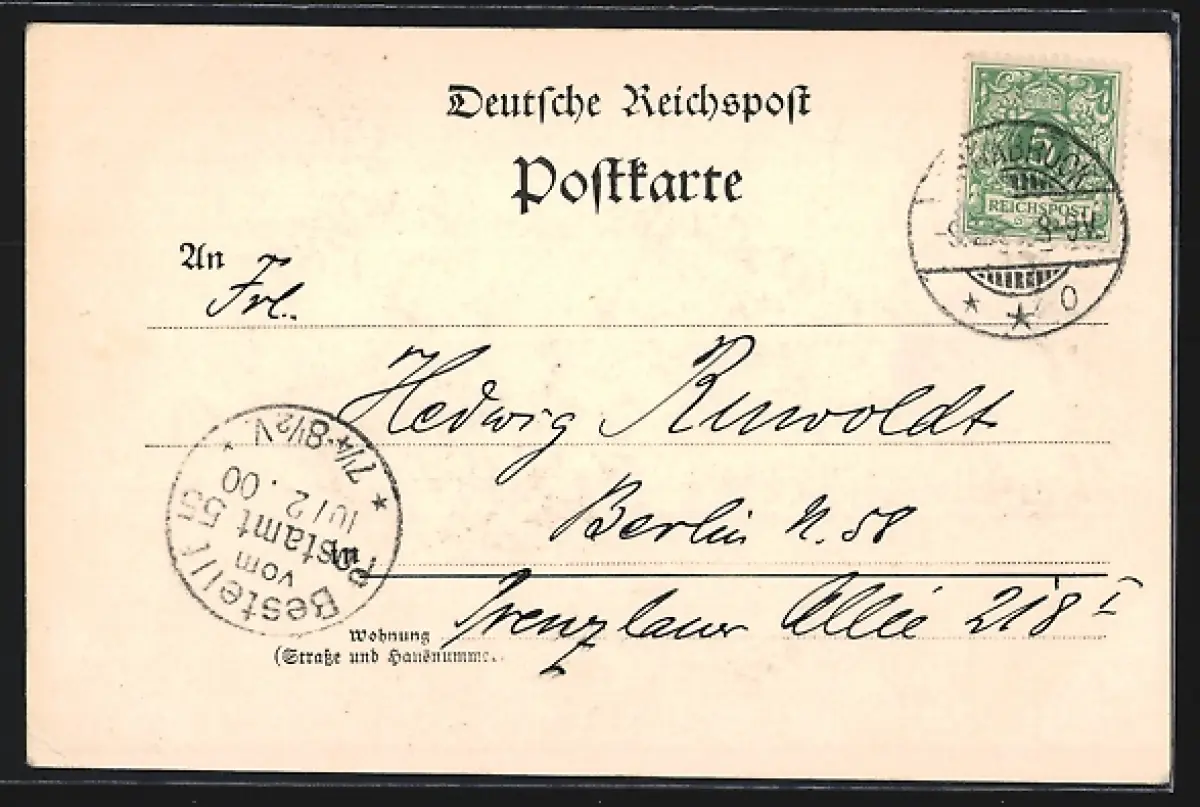 Deutsche Reichspost
Postkarte
5
REICHSPOST
8-9V.
* * O
An
Frl.
Hedwig
Berlin N. 58
in
Prenzlauer Allee 218 I
Wohnung
(Straße und Hausnumme
Bestellt
vom
Postamt 55
10/2.00
* 7¼-8½V *